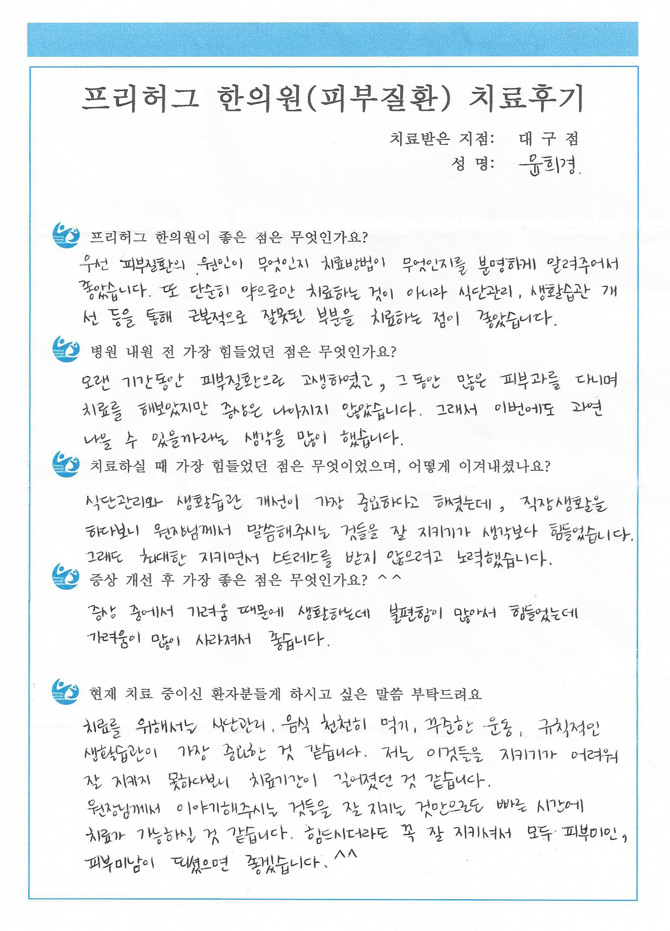 프리허그 한의원(피부질환) 치료후기
치료받은 지점: 대구점
성 명: 윤희경.
프리허그 한의원이 좋은 점은 무엇인가요?
우선 피부질환의 원인이 무엇인지 치료방법이 무엇인지를 분명하게 알려주어서
좋았습니다. 또 단순히 약으로만 치료하는 것이 아니라 식단관리, 생활습관 개
선 등을 통해 근본적으로 잘못된 부분을 치료하는 점이 좋았습니다.
병원 내원 전 가장 힘들었던 점은 무엇인가요?
오랜 기간동안 피부질환으로 고생하였고, 그동안 많은 피부과를 다니며
치료를 해보았지만 증상은 나아지지 않았습니다. 그래서 이번에도 과연
나을 수 있을까라는 생각을 많이 했습니다.
치료하실 때 가장 힘들었던 점은 무엇이었으며, 어떻게 이겨내셨나요?
식단관리와 생활습관 개선이 가장 중요하다고 하셨는데, 직장생활을
하다보니 원장님께서 말씀해주시는 것들을 잘 지키기가 생각보다 힘들었습니다.
그래도 최대한 지키면서 스트레스를 받지 않으려고 노력했습니다.
증상 개선 후 가장 좋은 점은 무엇인가요? ^^
증상 중에서 가려움 때문에 생활하는데 불편함이 많아서 힘들었는데
가려움이 많이 사라져서 좋습니다.
현재 치료 중이신 환자분들게 하시고 싶은 말씀 부탁드려요
치료를 위해서는 식단관리, 음식 천천히 먹기, 꾸준한 운동, 규칙적인
생활습관이 가장 중요한 것 같습니다. 저는 이것들을 지키기가 어려워
잘 지키지 못하다보니 치료기간이 길어졌던 것 같습니다.
원장님께서 이야기해주시는 것들을 잘 지키는 것만으로도 빠른 시간에
치료가 가능하실 것 같습니다. 힘드시더라도 꼭 잘 지키셔서 모두 피부미인,
피부미남이 되셨으면 좋겠습니다. ^^